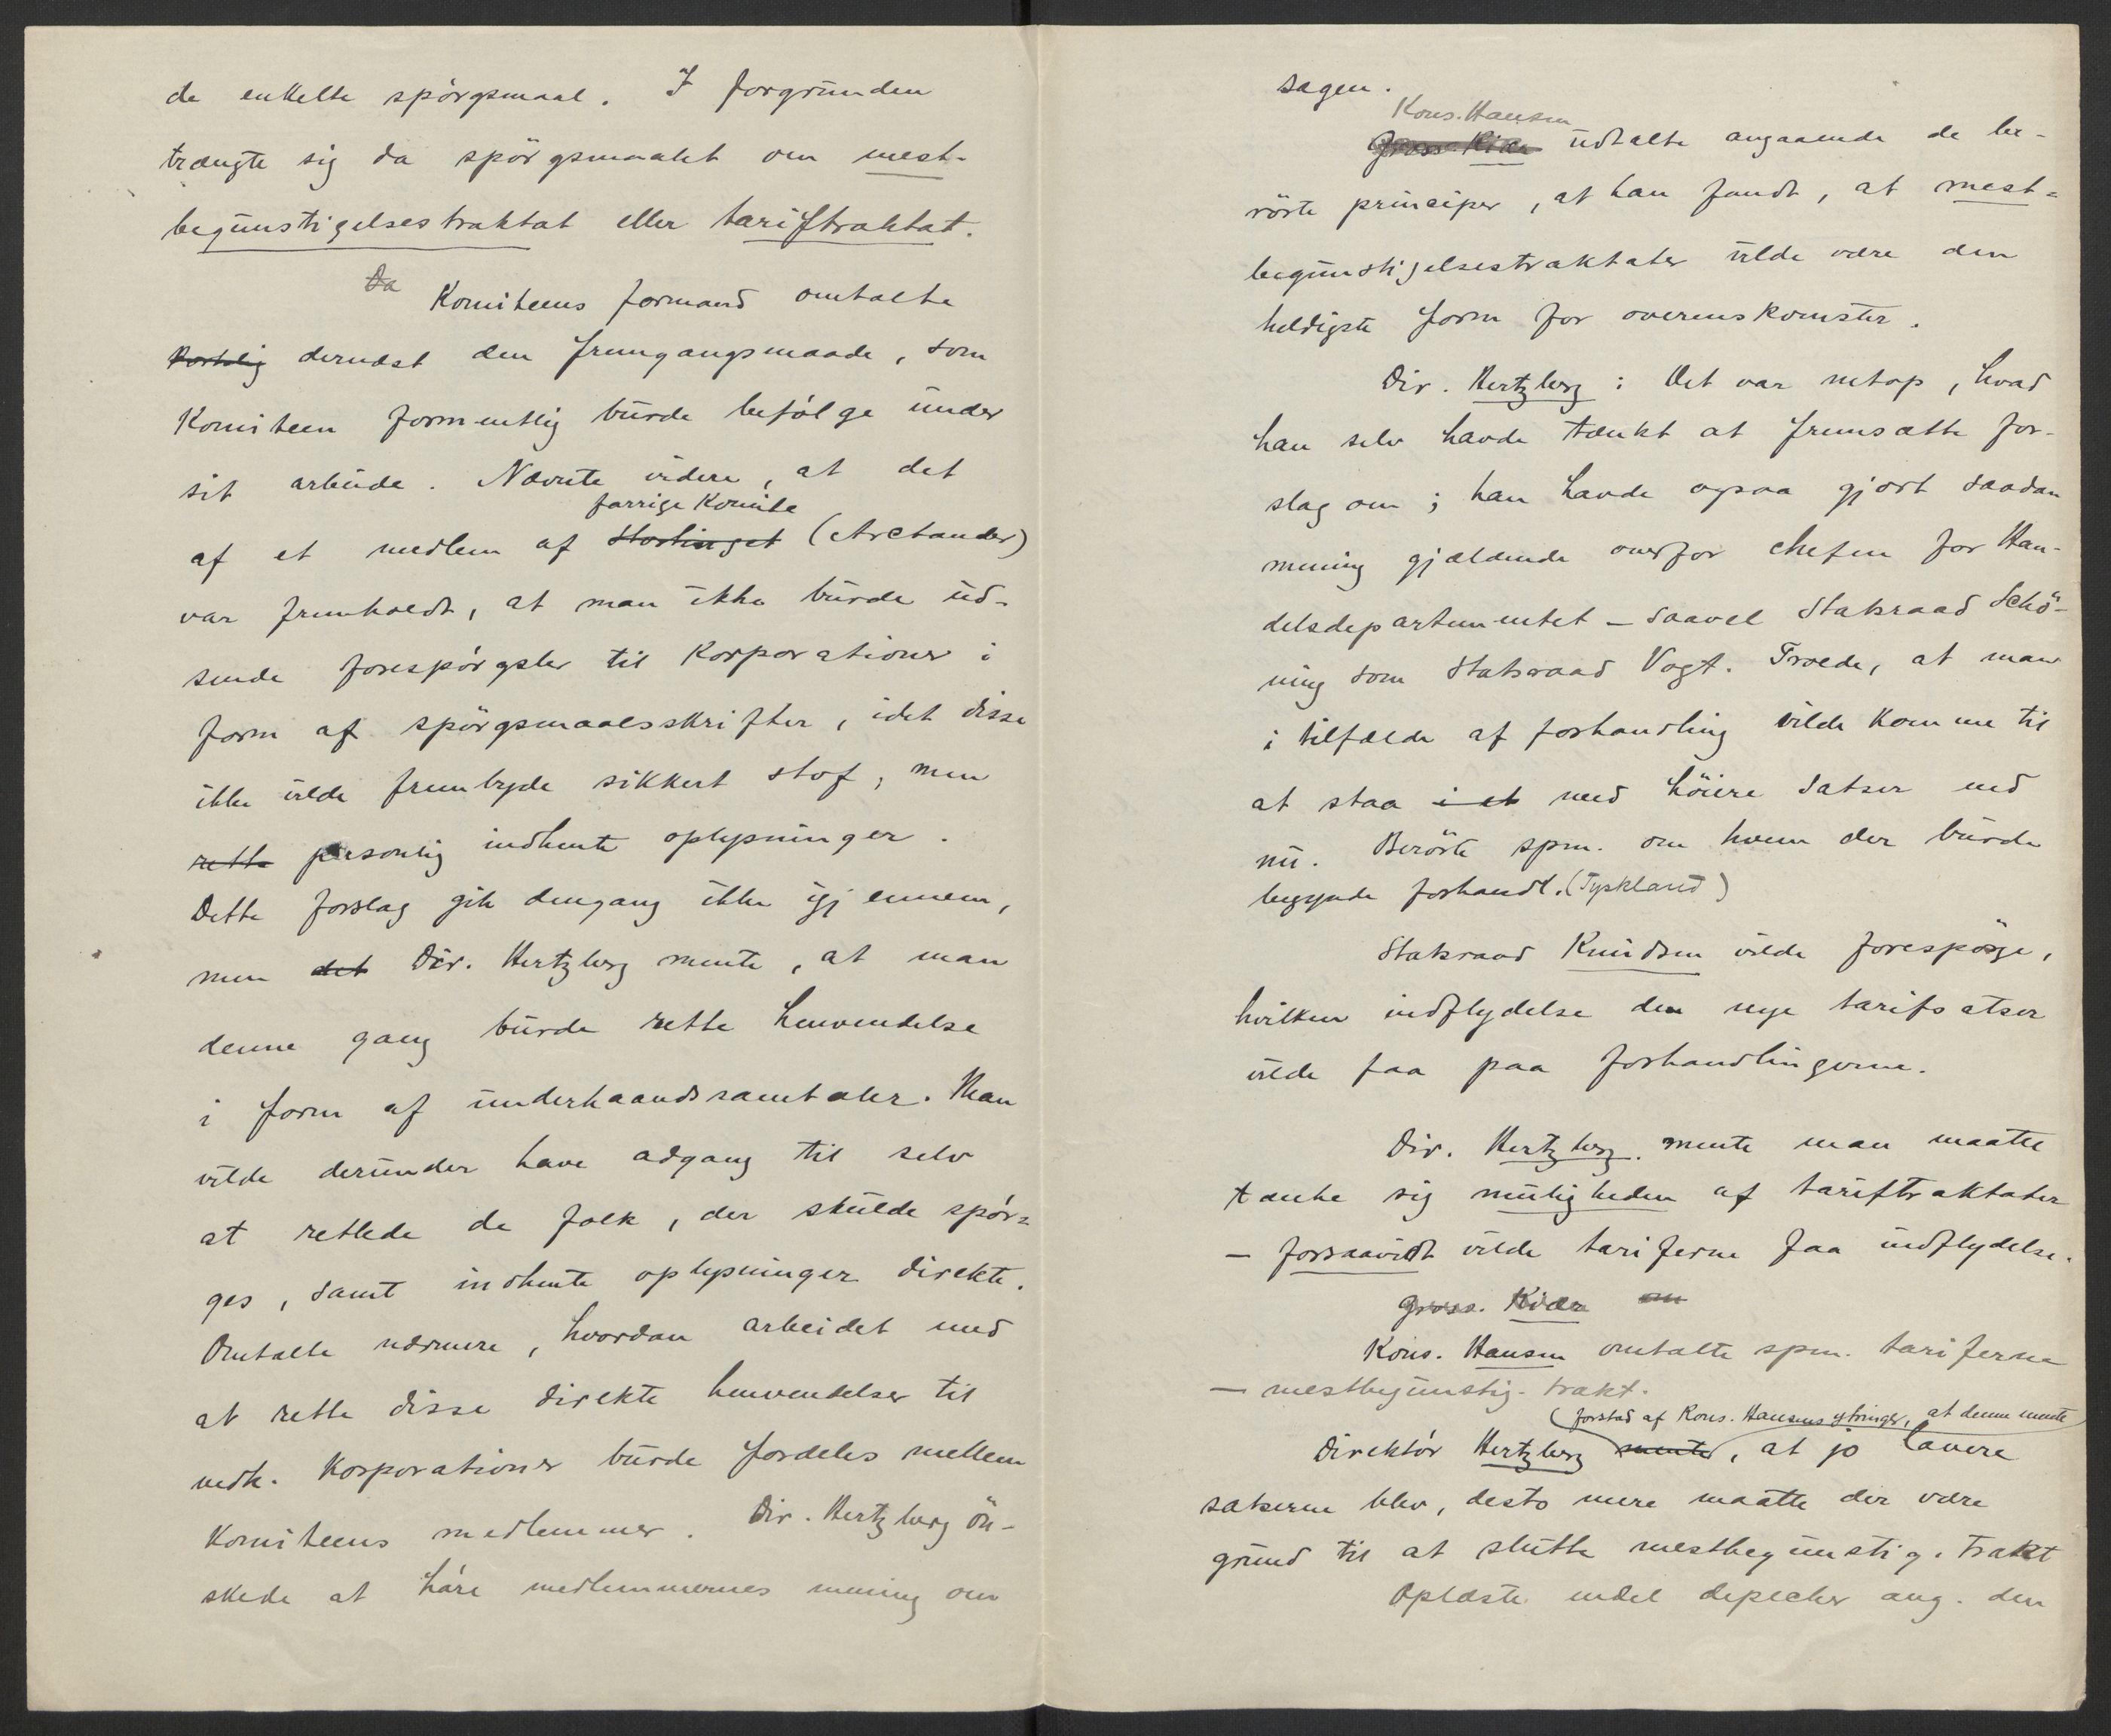 de enkelte spörgsmaal. I forgrunden
trængte sig da spörgsmaalet om mest-
begunstigelsestraktat eller tariftraktat.
Da Komiteens formand omtalte
dernæst den fremgangsmaade, som
Komiteen formentlig burde befölge under
sit arbeide. Nævnte videre, at det
forrige Komite
af et medlem af Stortinget (Arctander)
var fremholdt, at man ikke burde ud-
sende forespörgsler til Korporationer i
form af spörgsmaalsskrifter, idet disse
ikke vilde frembyde sikkert stof, men
rette personlig indhente oplysninger.
Dette forslag gik dengang ikke igjennem,
men det Dir. Hertzberg mente, at man
denne gang burde rette henvendelse
i form af underhaandssamtaler. Man
vilde derunder have adgang til selv
at retlede de folk, der skulde spör-
ges, samt indhente oplysninger direkte.
Omtalte nærmere, hvordan arbeidet med
at rette disse direkte henvendelser til
vedk. Korporationer burde fordeles mellem
Komiteens medlemmer. Dir. Hertzberg ön-
skede at höre medlemmernes mening om
sagen.
Kons. Hansen
Gross. Kiær udtalte angaaende de be-
rörte principer, at han fandt, at mest-
begunstigelsestraktater vilde være den
heldigste form for overenskomster.
Dir. Hertzberg: Det var netop, hvad
han selv havde tænkt at fremsætte for-
slag om; han havde ogsaa gjort saadan
mening gjældende overfor chefen for Han-
delsdepartementet - saavel Statsraad Schö-
ning som Statsraad Vogt. Troede, at man
i tilfælde af forhandling vilde komme til
at staa i et med höiere satser end
nu. Berörte spm. om hvem der burde
begynde forhandl. (Tyskland)
Statsraad Knudsen vilde forespörge,
hvilken indflydelse den nye tarifsatser
vilde faa paa forhandlingerne.
Dir. Hertzberg mente man maatte
tænke sig muligheden af tariftraktater
- forsaavidt vilde tariferne faa indflydelse.
Gross. Kiær om
Kons. Hansen omtalte spm. tariferne
- mestbegunstig. trakt.
(forstod af Kons. Hansens ytringer, at denne mente
Direktör Hertzberg mente, at jo lavere
satserne blev, desto mere maatte der være
grund til at slutte mestbegunstig. trakt
Oplæste endel depecher ang. den